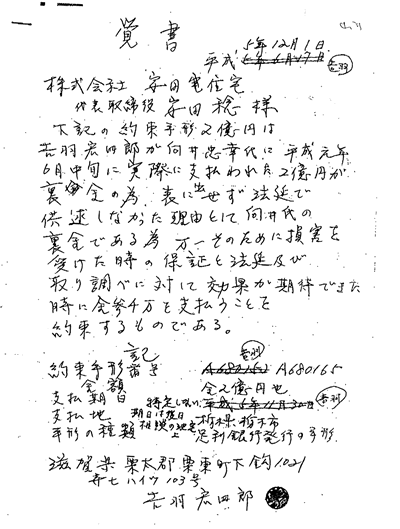 覚書
5年12月1日
平成 5年6月17日
株式会社 安田電住宅
代表取締役 安田 稔 様
下記の約束手形2億円は
吉羽宏四郎が向井忠幸氏に平成元年
6月中旬に実際に支払われた2億円が
裏金の為、表に出せず法廷で
供述しなかった理由として向井氏の
裏金である為 万一そのために損害を
受けた時の保証と法廷及び
取り調べに対して効果が期待できた
時に金参千万を支払うことを
約束するものである。
記
約束手形番号 A680165
金額 金2億円也
支払期日 特定しない
期日は後日
相談の決定
上
支払地 栃木県栃木市
手形の種類 足利銀行発行の手形
滋賀県栗太郡栗東町下鈎1021
ハイツ103号
吉羽宏四郎